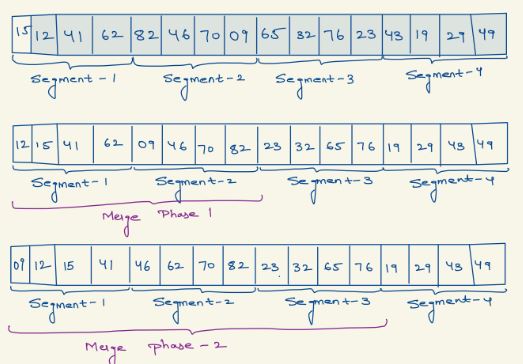 15 12 41 62 82 46 70 09 65 32 76 23 43 19 29 49
Segment-1 Segment-2 Segment-3 Segment-4
12 15 41 62 09 46 70 82 23 32 65 76 19 29 43 49
Segment-1 Segment-2 Segment-3 Segment-4
Merge Phase 1
09 12 15 41 46 62 70 82 23 32 65 76 19 29 43 49
Segment-1 Segment-2 Segment-3 Segment-4
Merge phase-2